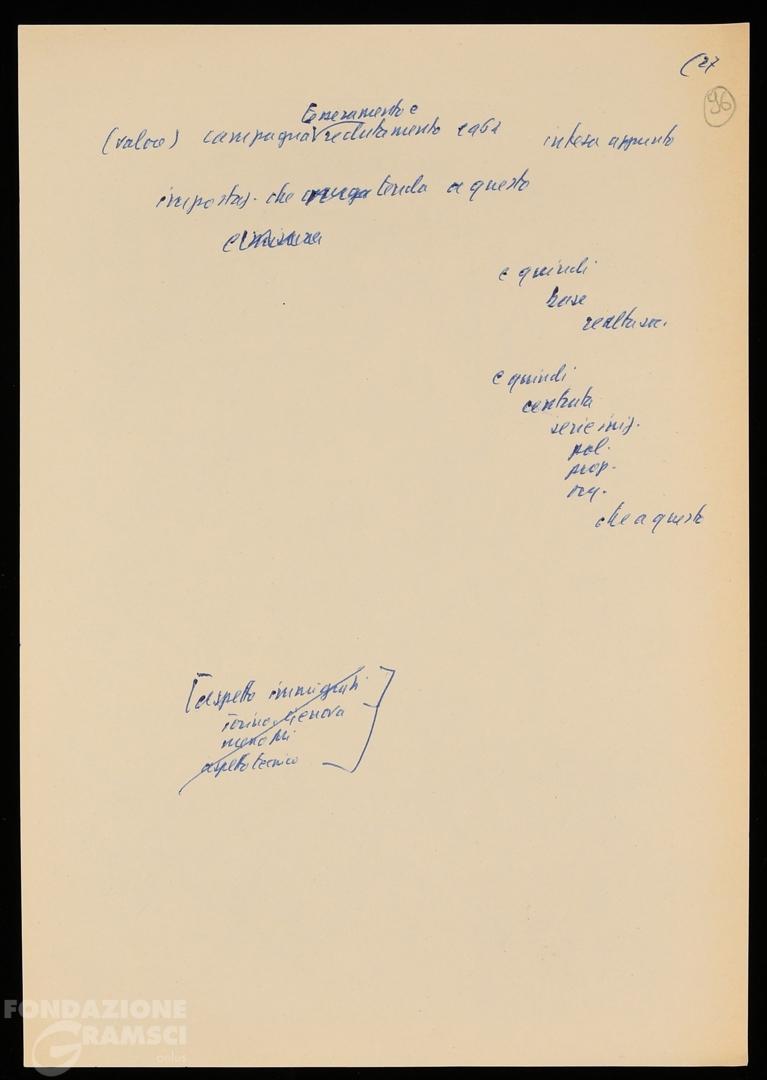 (27
96
tesseramento e
(valore) campagna reclutamento 1962 intesa appunto
impostaz. che tenda a questo
e quindi
base
realtà soc.
e quindi
centrata
serie iniz.
pol.
prop.
org.
che a questo
[aspetto immigrati
Torino Genova
aspetto tecnico]
FONDAZIONE
GRAMSCI
onlus